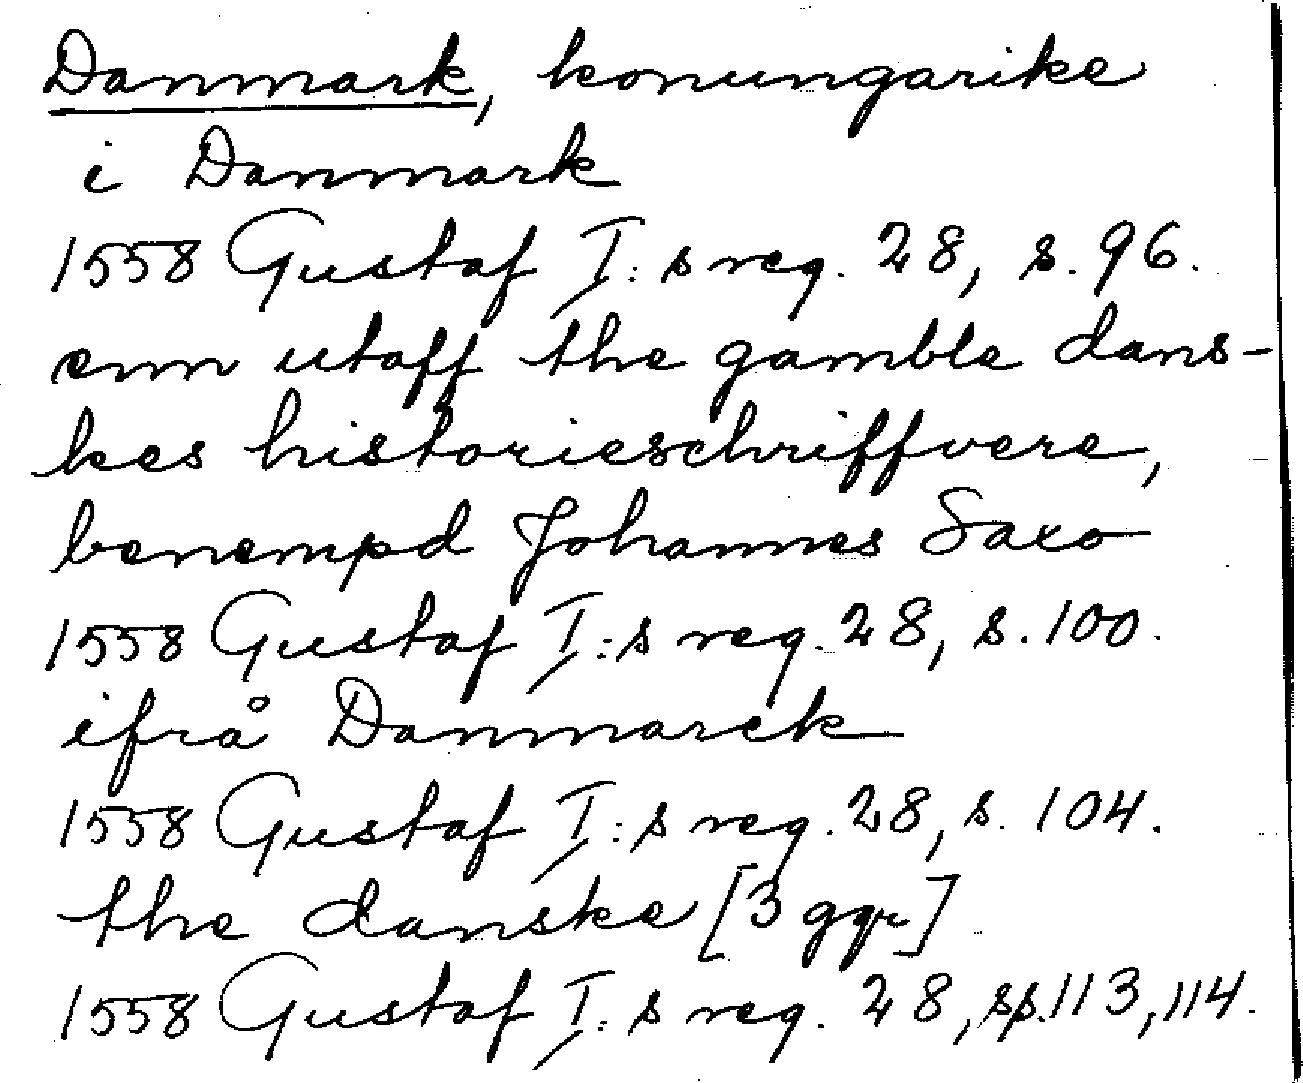 Danmark, konungarike
i Danmark
1558 Gustaf I:s reg. 28, s. 96.
enn utaff the gamble dans-
kes historieschriffvere,
benempd Johannes Saxo
1558 Gustaf I:s reg. 28, s. 100.
ifrå Danmarck
1558 Gustaf I:s reg. 28, s. 104.
the danske [3 ggr]
1558 Gustaf I:s reg. 28, sp. 113, 114.